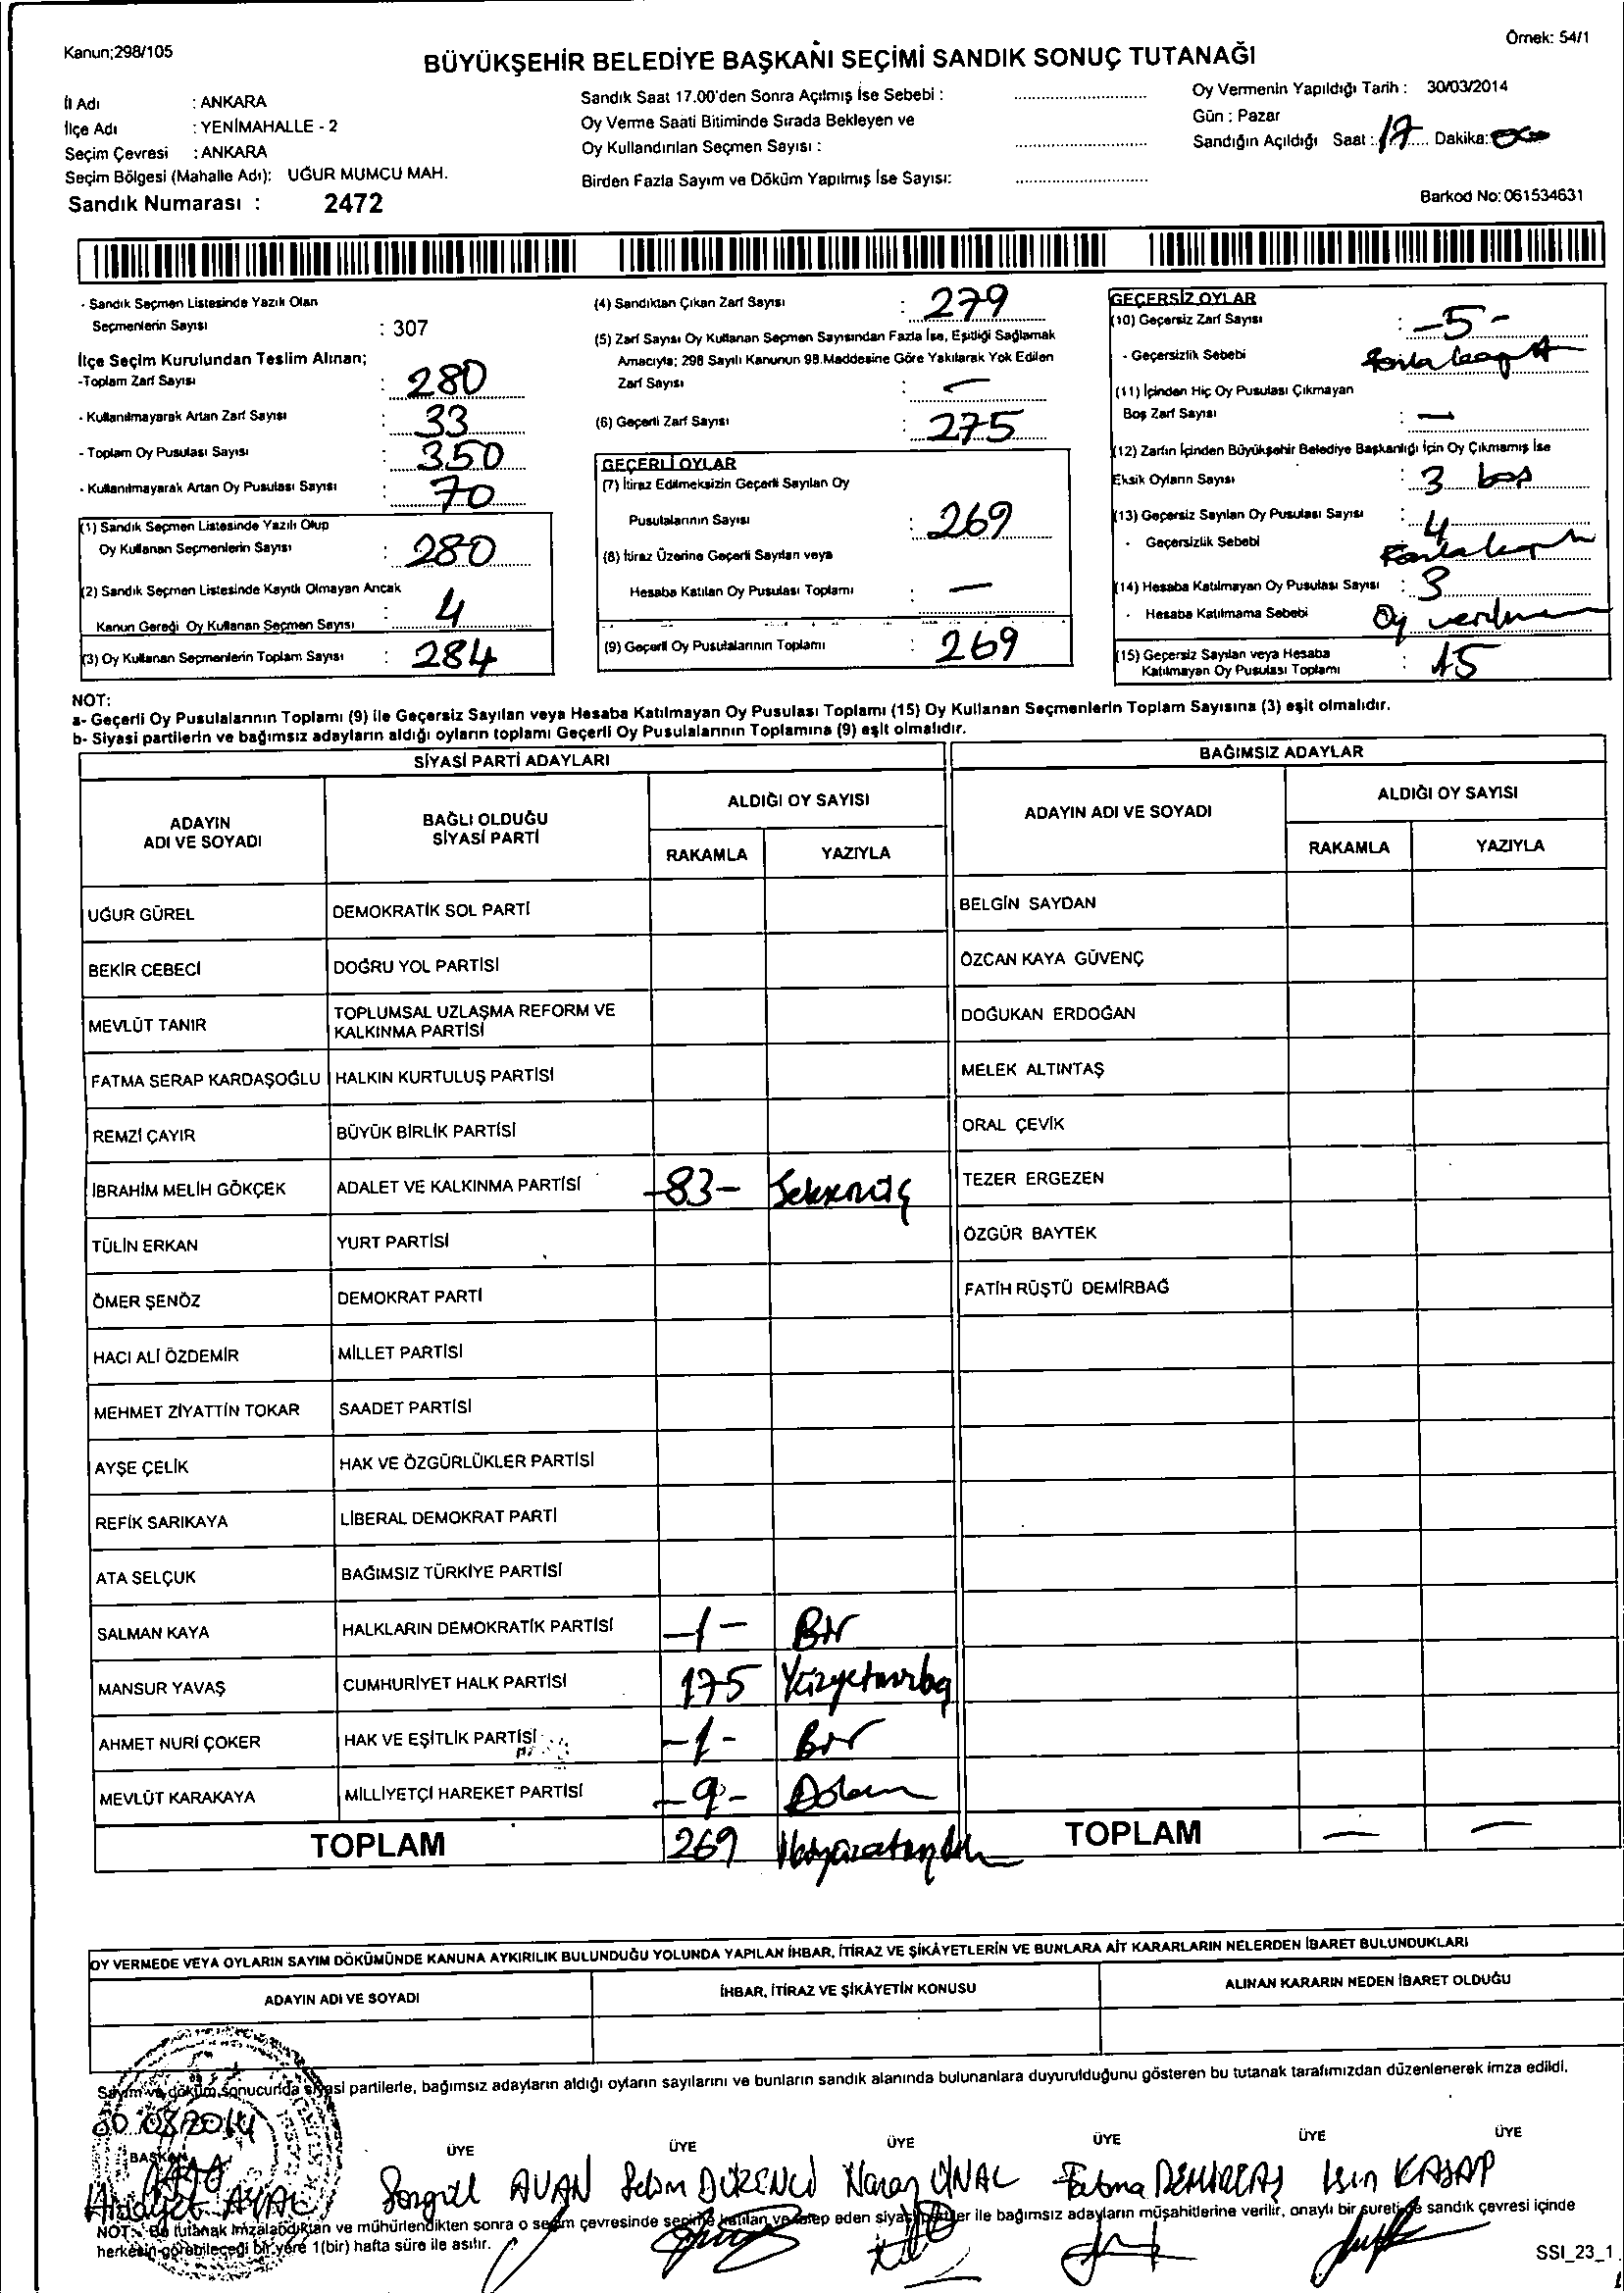 Kanun;298/105
Örnek: 54/1
BÜYÜKŞEHİR BELEDİYE BAŞKANI SEÇİMİ SANDIK SONUÇ TUTANAĞI
İl Adı : ANKARA
İlçe Adı : YENİMAHALLE - 2
Seçim Çevresi : ANKARA
Seçim Bölgesi (Mahalle Adı): UĞUR MUMCU MAH.
Sandık Numarası : 2472
Sandık Saat 17.00'den Sonra Açılmış İse Sebebi :
Oy Verme Saati Bitiminde Sırada Bekleyen ve
Oy Kullandırılan Seçmen Sayısı :
Birden Fazla Sayım ve Döküm Yapılmış İse Sayısı:
Oy Vermenin Yapıldığı Tarih : 30/03/2014
Gün : Pazar
Sandığın Açıldığı Saat : 17 Dakika:
Barkod No: 061534631
- Sandık Seçmen Listesinde Yazılı Olan
Seçmenlerin Sayısı : 307
İlçe Seçim Kurulundan Teslim Alınan;
-Toplam Zarf Sayısı : 280
- Kullanılmayarak Artan Zarf Sayısı : 33
- Toplam Oy Pusulası Sayısı : 350
- Kullanılmayarak Artan Oy Pusulası Sayısı : 70
(1) Sandık Seçmen Listesinde Yazılı Olup
Oy Kullanan Seçmenlerin Sayısı : 280
(2) Sandık Seçmen Listesinde Kayıtlı Olmayan Ancak
Kanun Gereği Oy Kullanan Seçmen Sayısı : 4
(3) Oy Kullanan Seçmenlerin Toplam Sayısı : 284
(4) Sandıktan Çıkan Zarf Sayısı : 279
(5) Zarf Sayısı Oy Kullanan Seçmen Sayısından Fazla İse, Eşitliği Sağlamak
Amacıyla; 298 Sayılı Kanunun 98.Maddesine Göre Yakılarak Yok Edilen
Zarf Sayısı : -
(6) Geçerli Zarf Sayısı : 275
GEÇERLİ OYLAR
(7) İtiraz Edilmeksizin Geçerli Sayılan Oy
Pusulalarının Sayısı : 269
(8) İtiraz Üzerine Geçerli Sayılan veya
Hesaba Katılan Oy Pusulası Toplamı : -
(9) Geçerli Oy Pusulalarının Toplamı : 269
GEÇERSİZ OYLAR
(10) Geçersiz Zarf Sayısı : -5-
- Geçersizlik Sebebi
(11) İçinden Hiç Oy Pusulası Çıkmayan
Boş Zarf Sayısı : -
(12) Zarfın İçinden Büyükşehir Belediye Başkanlığı İçin Oy Çıkmamış İse
Eksik Oyların Sayısı : 3 boş
(13) Geçersiz Sayılan Oy Pusulası Sayısı : 4
- Geçersizlik Sebebi
(14) Hesaba Katılmayan Oy Pusulası Sayısı : 3
- Hesaba Katılmama Sebebi Oy
(15) Geçersiz Sayılan veya Hesaba
Katılmayan Oy Pusulası Toplamı : 15
NOT:
a- Geçerli Oy Pusulalarının Toplamı (9) ile Geçersiz Sayılan veya Hesaba Katılmayan Oy Pusulası Toplamı (15) Oy Kullanan Seçmenlerin Toplam Sayısına (3) eşit olmalıdır.
b- Siyasi partilerin ve bağımsız adayların aldığı oyların toplamı Geçerli Oy Pusulalarının Toplamına (9) eşit olmalıdır.
SİYASİ PARTİ ADAYLARI
ADAYIN
ADI VE SOYADI
BAĞLI OLDUĞU
SİYASİ PARTİ
ALDIĞI OY SAYISI
RAKAMLA YAZIYLA
UĞUR GÜREL DEMOKRATİK SOL PARTİ
BEKİR CEBECİ DOĞRU YOL PARTİSİ
MEVLÜT TANIR TOPLUMSAL UZLAŞMA REFORM VE
KALKINMA PARTİSİ
FATMA SERAP KARDAŞOĞLU HALKIN KURTULUŞ PARTİSİ
REMZİ ÇAYIR BÜYÜK BİRLİK PARTİSİ
İBRAHİM MELİH GÖKÇEK ADALET VE KALKINMA PARTİSİ -83- Seksenüç
TÜLİN ERKAN YURT PARTİSİ
ÖMER ŞENÖZ DEMOKRAT PARTİ
HACI ALİ ÖZDEMİR MİLLET PARTİSİ
MEHMET ZİYATTİN TOKAR SAADET PARTİSİ
AYŞE ÇELİK HAK VE ÖZGÜRLÜKLER PARTİSİ
REFİK SARIKAYA LİBERAL DEMOKRAT PARTİ
ATA SELÇUK BAĞIMSIZ TÜRKİYE PARTİSİ
SALMAN KAYA HALKLARIN DEMOKRATİK PARTİSİ -1- Bir
MANSUR YAVAŞ CUMHURİYET HALK PARTİSİ 175 Yüzyetmişbeş
AHMET NURİ ÇOKER HAK VE EŞİTLİK PARTİSİ -1- Bir
MEVLÜT KARAKAYA MİLLİYETÇİ HAREKET PARTİSİ -9-
TOPLAM 269
BAĞIMSIZ ADAYLAR
ADAYIN ADI VE SOYADI
ALDIĞI OY SAYISI
RAKAMLA YAZIYLA
BELGİN SAYDAN
ÖZCAN KAYA GÜVENÇ
DOĞUKAN ERDOĞAN
MELEK ALTINTAŞ
ORAL ÇEVİK
TEZER ERGEZEN
ÖZGÜR BAYTEK
FATİH RÜŞTÜ DEMİRBAĞ
TOPLAM - -
OY VERMEDE VEYA OYLARIN SAYIM DÖKÜMÜNDE KANUNA AYKIRILIK BULUNDUĞU YOLUNDA YAPILAN İHBAR, İTİRAZ VE ŞİKÂYETLERİN VE BUNLARA AİT KARARLARIN NELERDEN İBARET BULUNDUKLARI
ADAYIN ADI VE SOYADI
İHBAR, İTİRAZ VE ŞİKÂYETİN KONUSU
ALINAN KARARIN NEDEN İBARET OLDUĞU
Sayım ve döküm sonucunda siyasi partilerle, bağımsız adayların aldığı oyların sayılarını ve bunların sandık alanında bulunanlara duyurulduğunu gösteren bu tutanak tarafımızdan düzenlenerek imza edildi.
30.03.2014
BAŞKAN ÜYE ÜYE ÜYE ÜYE ÜYE ÜYE
Songül AVAN Selim ÜNAL Fatma Işın KASAP
NOT: Bu tutanak imzalandıktan ve mühürlendikten sonra o seçim çevresinde seçime katılan ve talep eden siyasi partiler ile bağımsız adayların müşahitlerine verilir, onaylı bir sureti de sandık çevresi içinde
herkesin görebileceği bir yere 1(bir) hafta süre ile asılır.
SSI_23_1